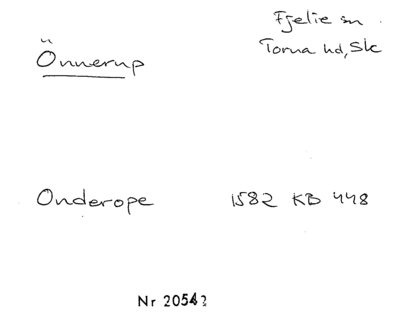 Önnerup
Fjelie sn
Torna hd, Sk
Onderope 1582 KB 448
Nr 20542